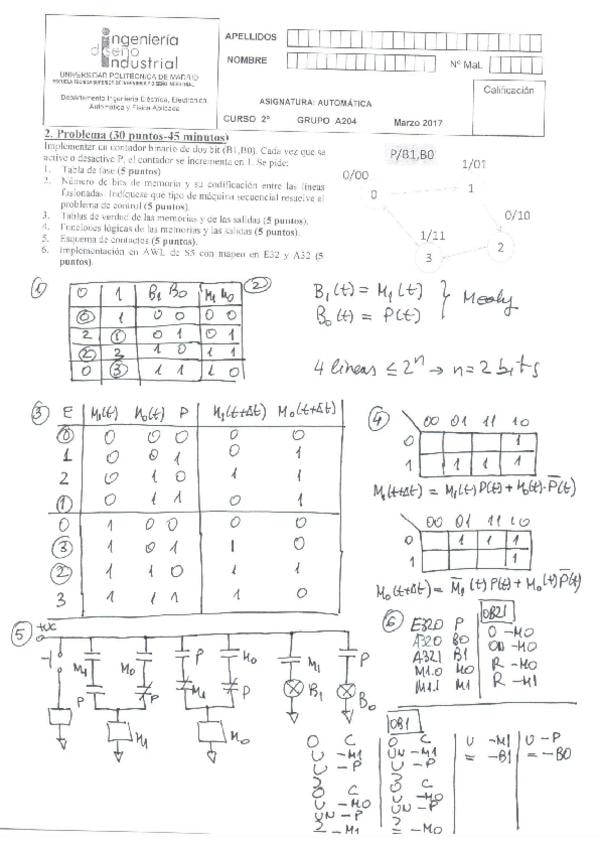 ingeniería
diseño
industrial
UNIVERSIDAD POLITÉCNICA DE MADRID
Departamento Ingeniería Eléctrica, Electrónica
Automática y Física Aplicada
APELLIDOS
NOMBRE
Nº Mat.
Calificación
ASIGNATURA: AUTOMÁTICA
CURSO 2º GRUPO A204 Marzo 2017
2. Problema (30 puntos-45 minutos)
Implementar un contador binario de dos bit (B1,B0). Cada vez que se
active o desactive P, el contador se incrementa en 1. Se pide:
1. Tabla de fase (5 puntos)
2. Número de bits de memoria y su codificación entre las líneas
fusionadas. Indíquese qué tipo de máquina secuencial resuelve el
problema de control (5 puntos).
3. Tablas de verdad de las memorias y de las salidas (5 puntos).
4. Funciones lógicas de las memorias y las salidas (5 puntos).
5. Esquema de contactos (5 puntos).
6. Implementación en AWL de S5 con mapeo en E32 y A32 (5
puntos).
P/B1,B0
0/00
1/01
0
1
0/10
1/11
2
3
① 0 1 B₁ B₀ M₁ M₀ ②
⓪ 1 0 0 0 0
2 ① 0 1 0 1
② 3 1 0 1 1
0 ③ 1 1 1 0
B₁(t) = M₁(t)
B₀(t) = P(t)
} Mealy
4 líneas ≤ 2ⁿ → n = 2 bits
③ E M₁(t) M₀(t) P M₁(t+Δt) M₀(t+Δt)
⓪ 0 0 0 0 0
1 0 0 1 0 1
2 0 1 0 1 1
① 0 1 1 0 1
0 1 0 0 0 0
③ 1 0 1 1 0
② 1 1 0 1 1
3 1 1 1 1 0
④ 00 01 11 10
0 1
1 1 1 1
M₁(t+Δt) = M₁(t) P(t) + M₀(t)·P̅(t)
00 01 11 10
0 1 1 1
1 1
M₀(t+Δt) = M̅₁(t) P(t) + M₀(t) P̅(t)
⑤ +Vcc
M₁ M₀ P M₀ M₁ P
P P M₁ P B₁ B₀
M₁ M₀
⑥ E32.0 P
A32.0 B0
A32.1 B1
M1.0 M0
M1.1 M1
OB21
O -M0
ON -M0
R -M0
R -M1
OB1
O (
U -M1
U -P
)
O (
U -M0
UN -P
)
= -M1
O (
UN -M1
U -P
)
O (
U -M0
UN -P
)
= -M0
U -M1
= -B1
U -P
= -B0